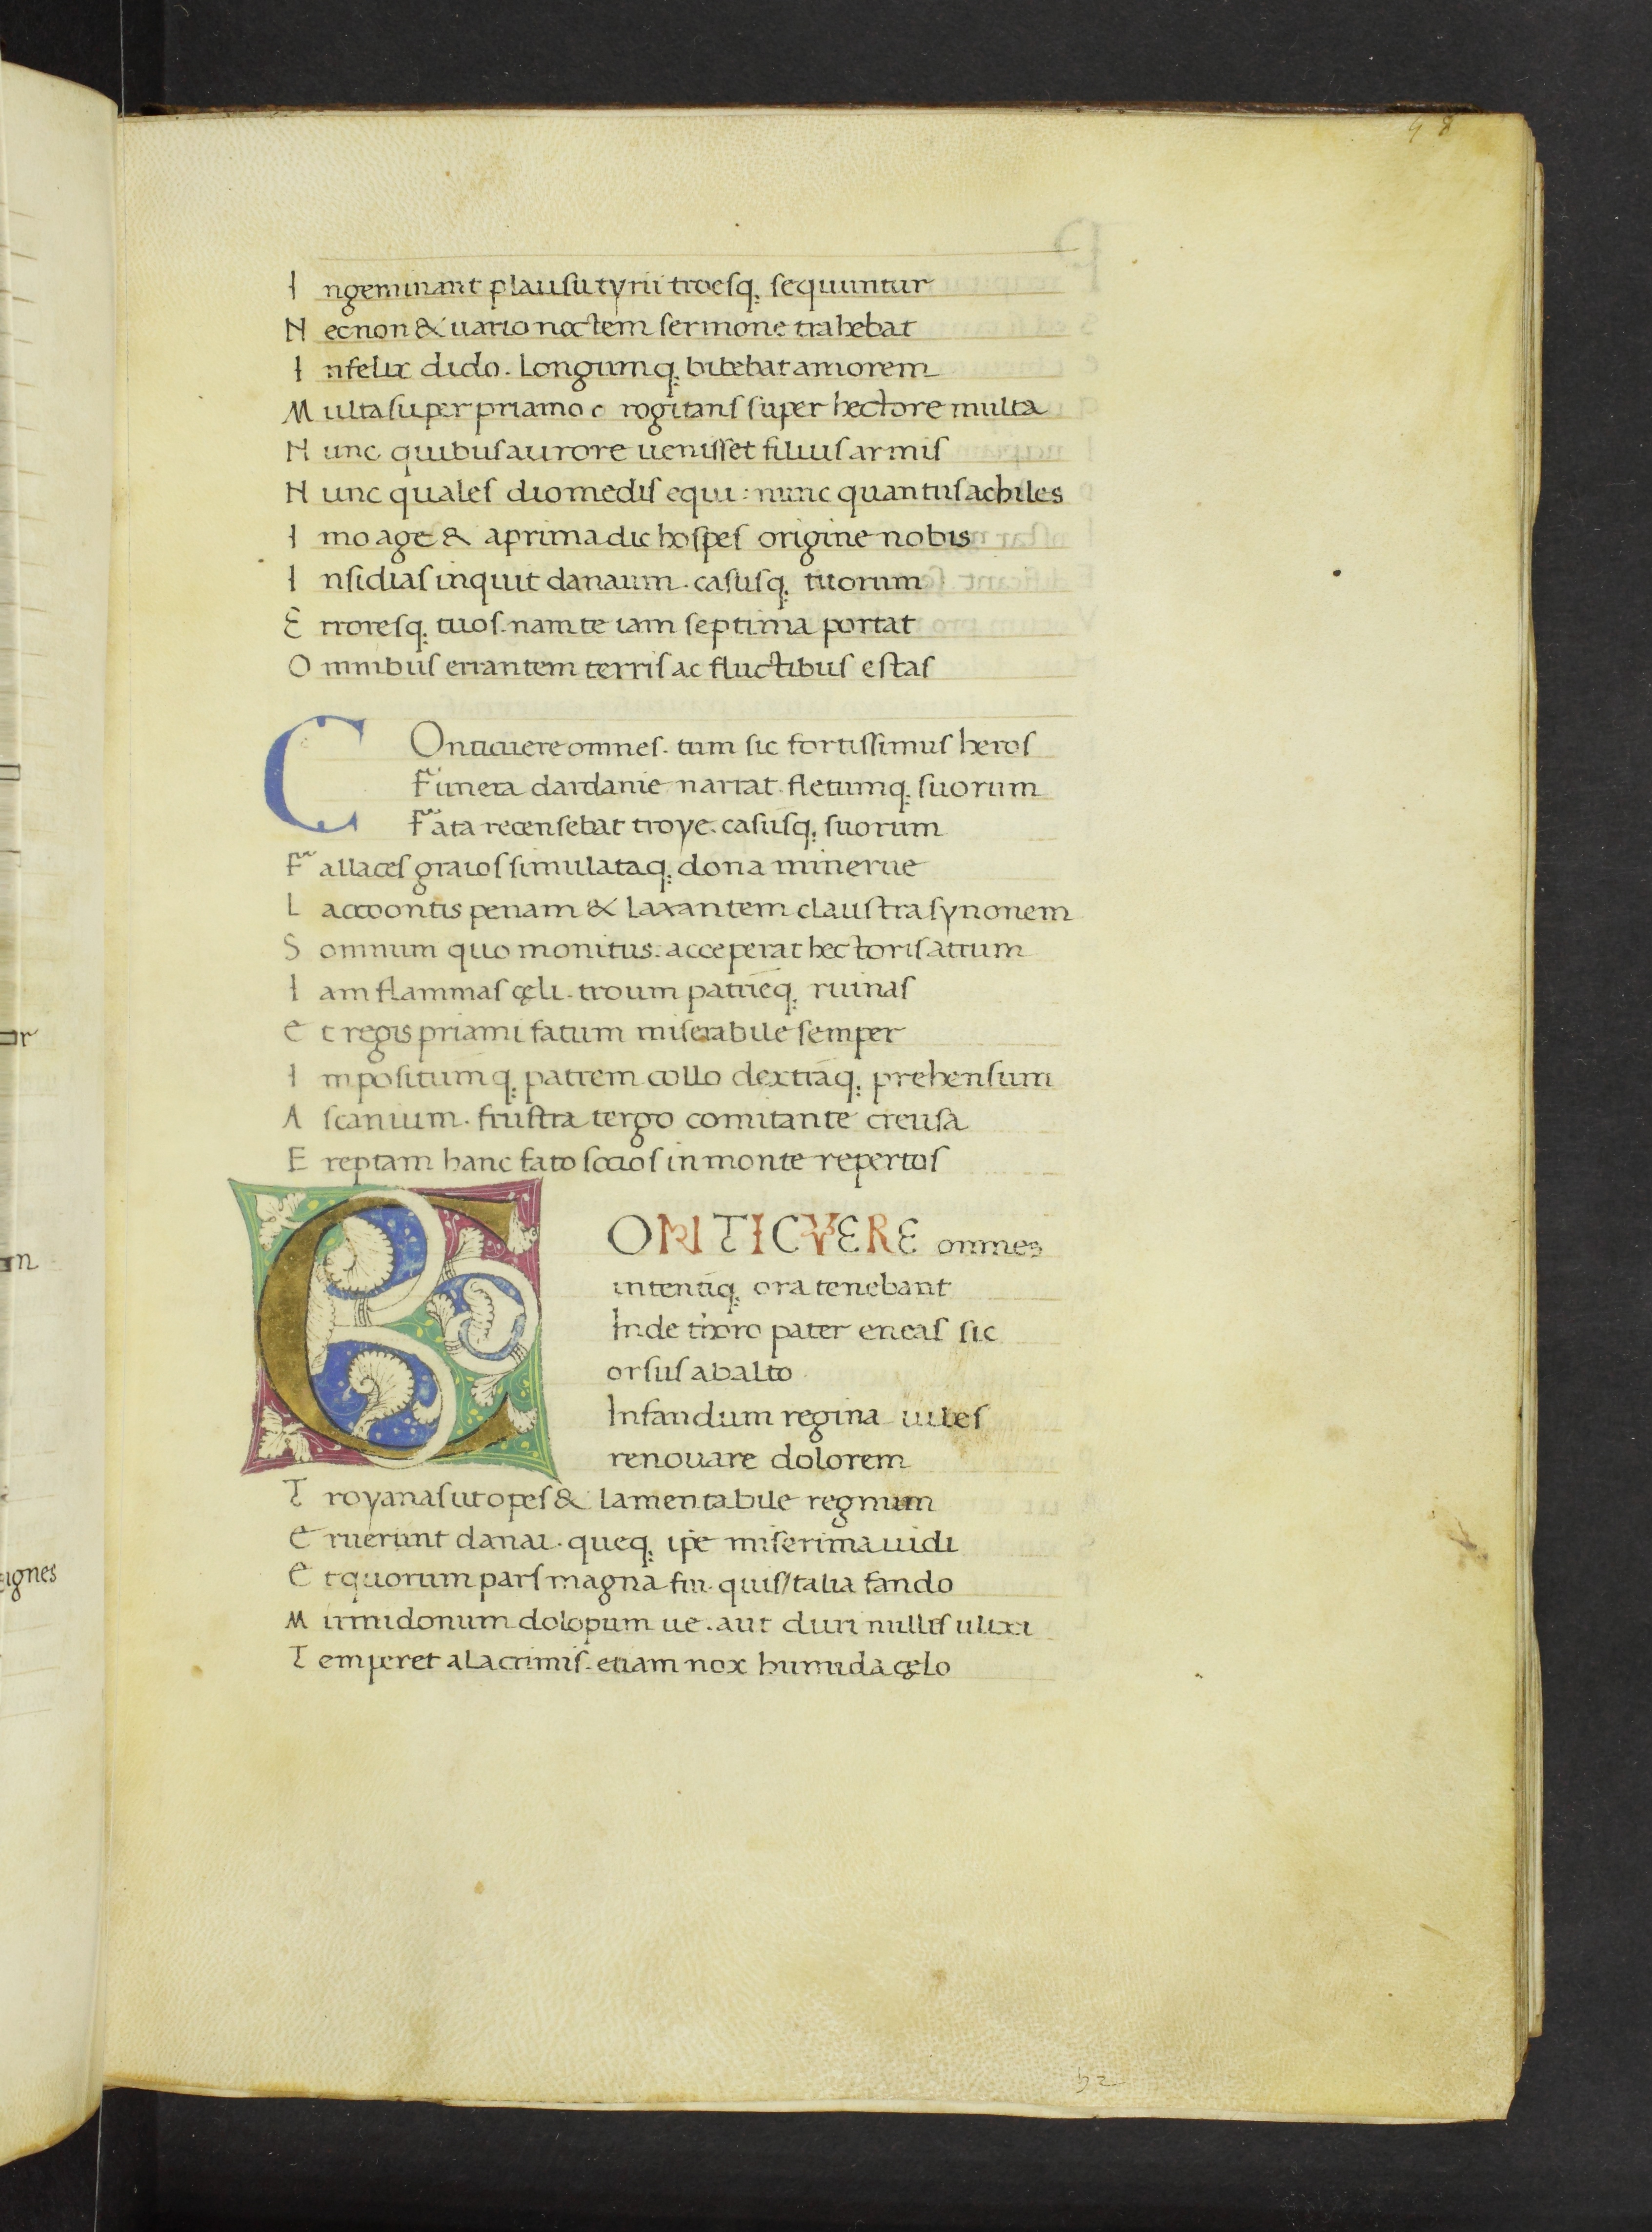 48
I ngeminant plausu tyrii troesq. sequuntur
N ecnon & uario noctem sermone trahebat
I nfelix dido. longumq. bibebat amorem
M ulta super priamo rogitans super hectore multa
N unc quibus aurore uenisset filius armis
N unc quales diomedis equi: nunc quantus achiles
I mo age & a prima dic hospes origine nobis
I nsidias inquit danaum. casusq. tuorum
E rroresq. tuos. nam te iam septima portat
O mnibus errantem terris ac fluctibus estas
C Onticuere omnes. tum sic fortissimus heros
Funera dardanie narrat. fletumq. suorum
Fata recensebat troye. casusq. suorum
F allaces graios simulataq. dona minerue
L accoontis penam & laxantem claustra synonem
S omnum quo monitus: acceperat hectoris atrum
I am flammas çeli. troum patrieq. ruinas
e t regis priami fatum miserabile semper
I mpositumq. patrem collo dextraq. prehensum
A scanium. frustra tergo comitante creusa
E reptam hanc fato socios in monte repertos
C ONTICVERE omnes
intentiq. ora tenebant
Inde thoro pater eneas sic
orsus ab alto
Infandum regina iubes
renouare dolorem
T royanas ut opes & lamentabile regnum
e ruerunt danai. queq. ipe miserima uidi
e t quorum pars magna fui. quis/talia fando
M irmidonum dolopum ue. aut duri ulixi
T emperet a lacrimis. etiam nox humida çelo
r
n
ignes
h2